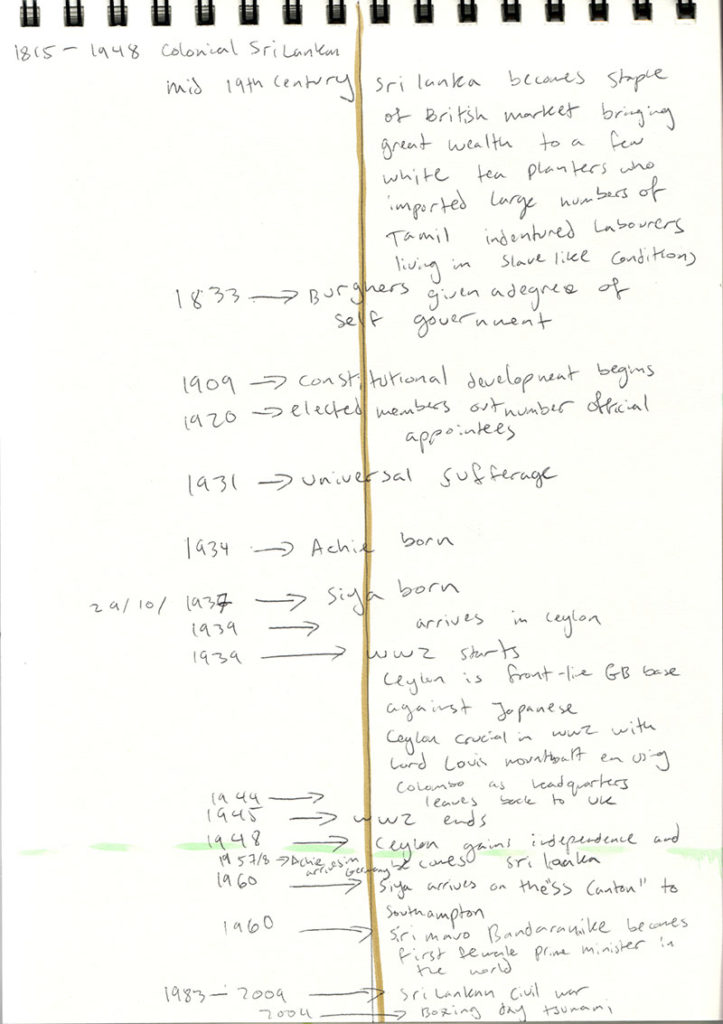 1815 - 1948 Colonial Sri Lankan
mid 19th Century Sri lanka becomes staple
of British market bringing
great wealth to a few
white tea planters who
imported large numbers of
Tamil indentured Labourers
living in slave like conditions
1833 → Burghers given a degree of
self government
1909 → constitutional development begins
1920 → elected members outnumber official
appointees
1931 → universal sufferage
1934 → Achie born
29/10/ 1937 → Siya born
1939 → arrives in Ceylon
1939 → WW2 starts
Ceylon is front-line GB base
against Japanese
Ceylon crucial in WW2 with
Lord Louis mountbatt en using
Colombo as headquarters
1944 → leaves back to UK
1945 → WW2 ends
1948 → Ceylon gains independence and
becomes Sri lanka
1957/8 → Achie arrives in Germany
1960 → Siya arrives on the "SS Canton" to
Southampton
1960 → Sri mavo Bandaranike becomes
first female prime minister in
the world
1983 - 2009 → Sri Lankan Civil war
2004 → Boxing day tsunami